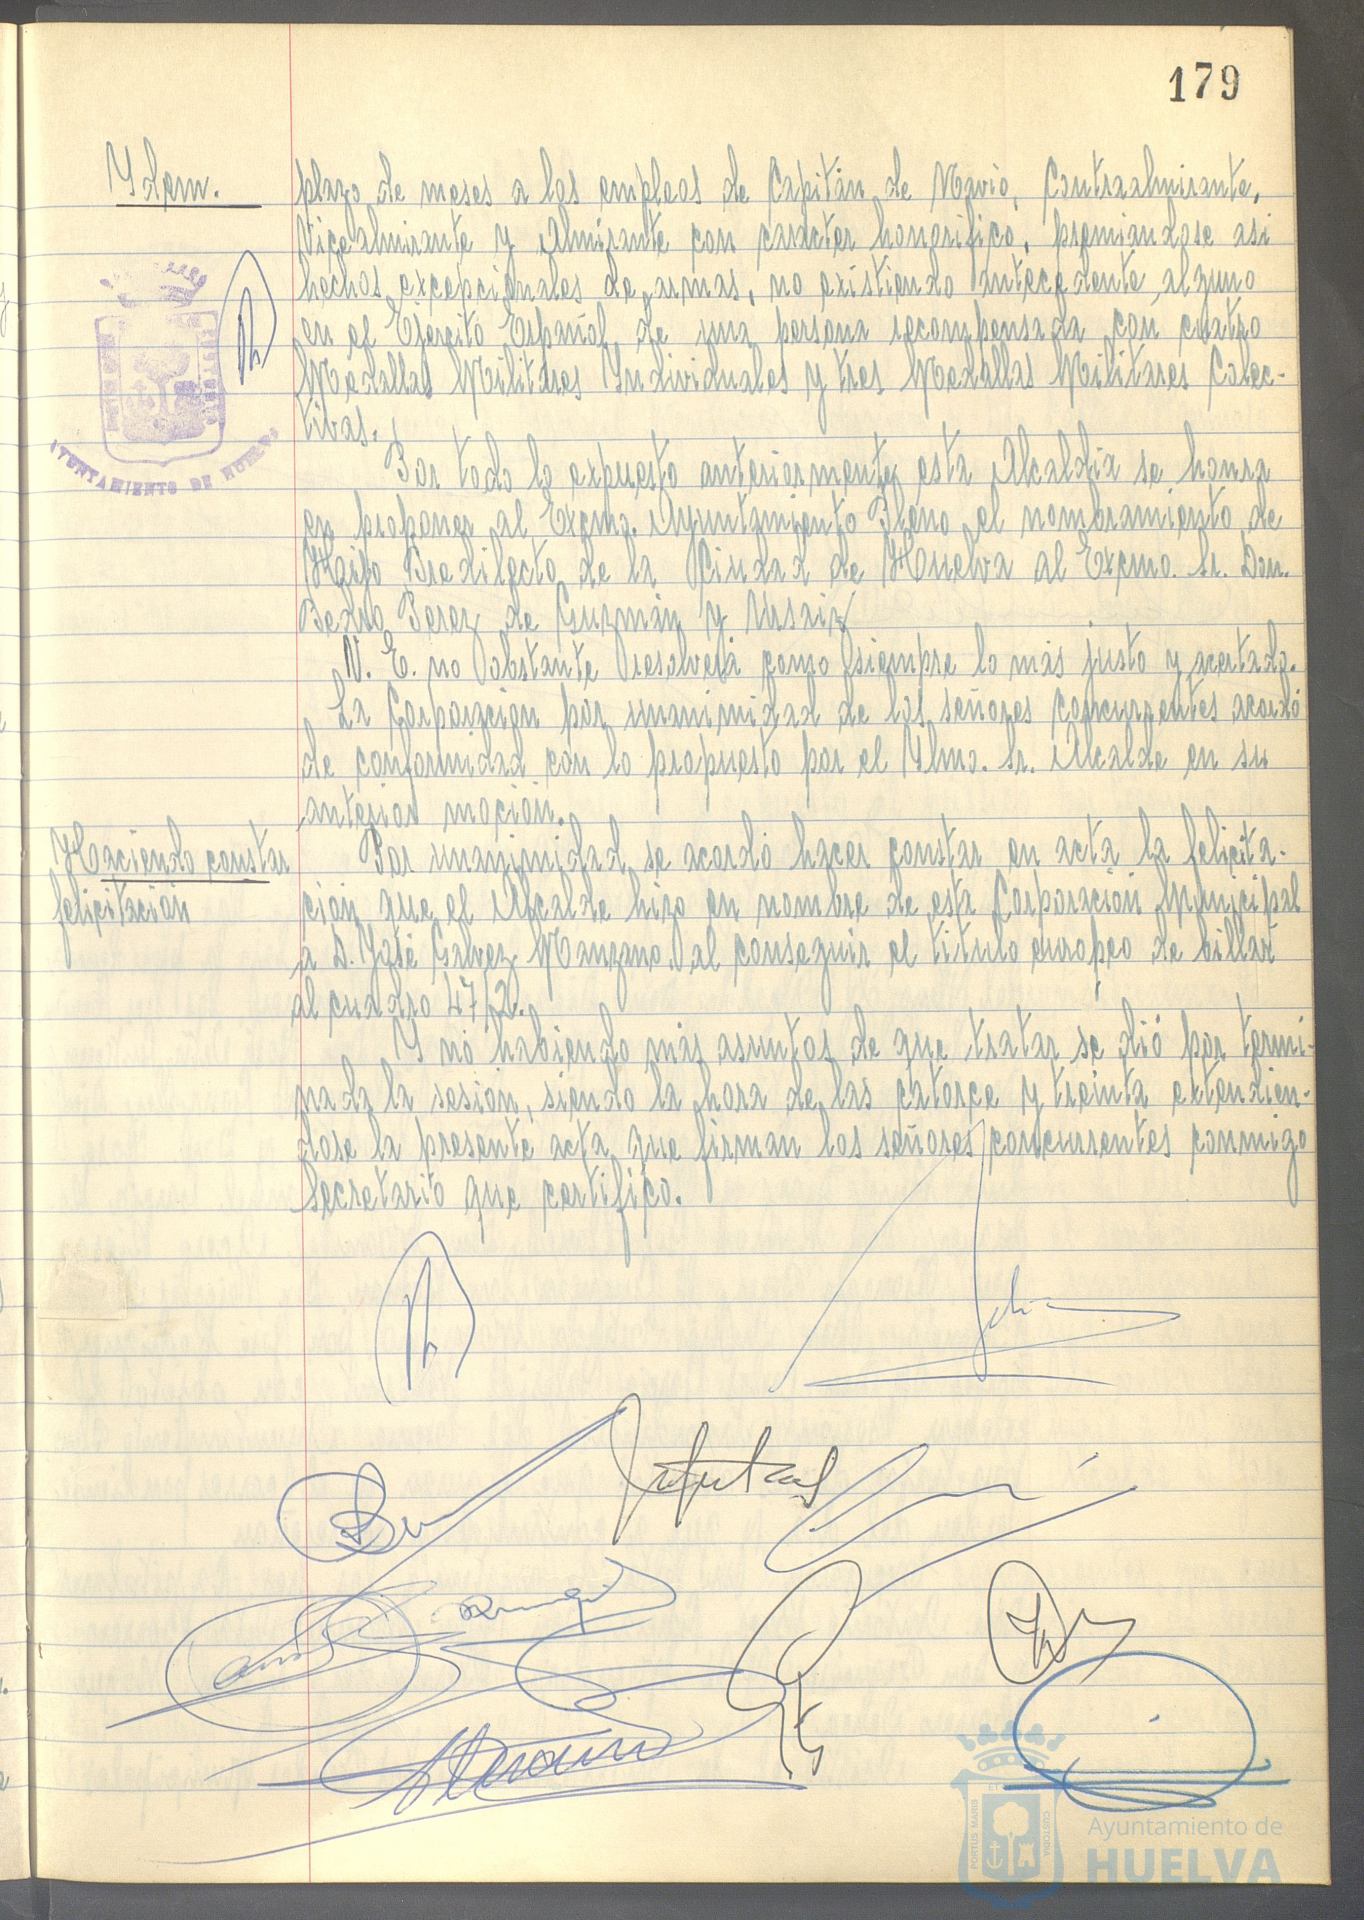 179
Ydem.
plazo de meses a los empleos de Capitán de Navió, Contraalmirante,
Vicealmirante y Almirante con caracter honorifico, premiandose asi
hechos excepcionales de armas, no existiendo antecedente alguno
en el Ejercito Español de una persona recompensada con cuatro
Medallas Militares Yndividuales y tres Medallas Militares Colec-
tivas.
Por todo lo expuesto anteriormente, esta Alcaldia se honra
en proponer al Excmo. Ayuntamiento Pleno el nombramiento de
Hijo Predilecto de la Ciudad de Huelva al Excmo. Sr. Don.
Pedro Perez de Guzmán y Urzaiz
V. E. no obstante resolverá como siempre lo mas justo y acertado.
La Corporación por unanimidad de los señores concurrentes acordó
de conformidad con lo propuesto por el Ylmo. Sr. Alcalde en su
anterior moción.
Haciendo constar
felicitación
Por unanimidad se acordó hacer constar en acta la felicita-
ción que el Alcalde hizo en nombre de esta Corporación Municipal
a D. José Galvez Manzano, al conseguir el titulo europeo de billar
al cuadro 47/2.
Y no habiendo más asuntos de que tratar se dió por termi-
nada la sesión, siendo la hora de las catorce y treinta extendien-
dose la presente acta que firman los señores concurrentes conmigo
Secretario que certifico.
AYUNTAMIENTO DE HUELVA
PORTUS MARIS ET TERRAE CUSTODIA
Ayuntamiento de
HUELVA